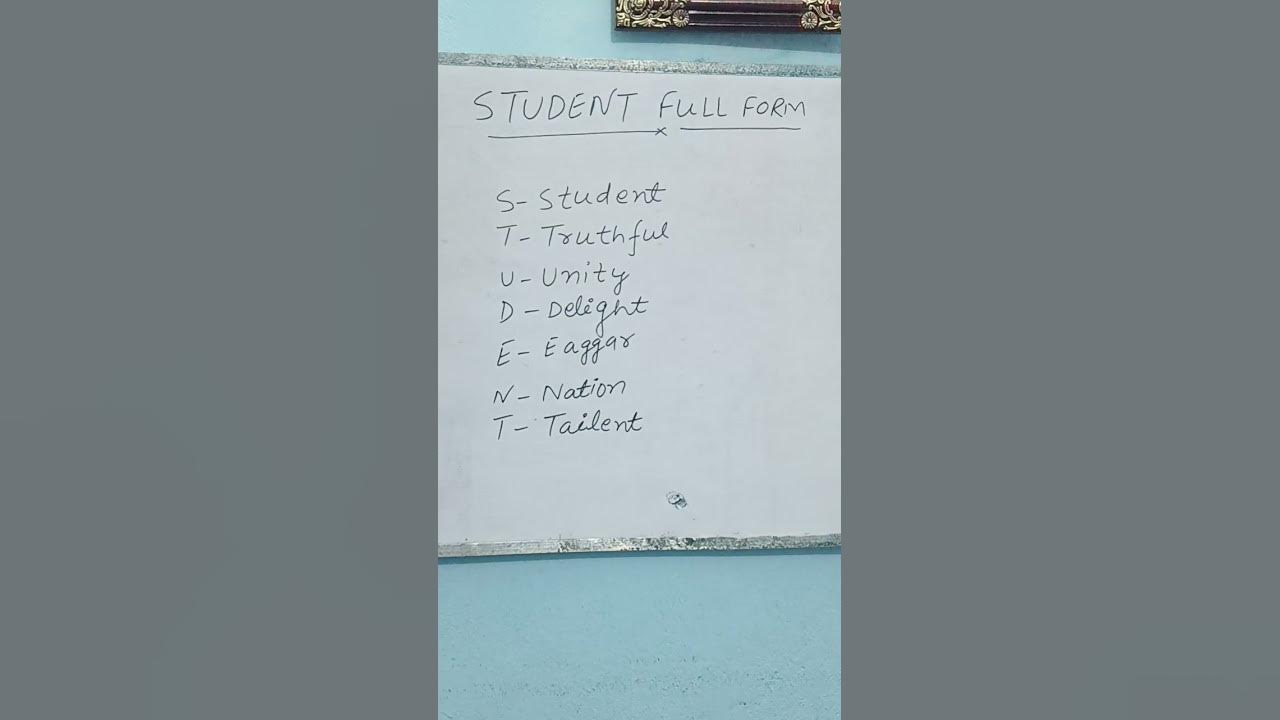 STUDENT FULL FORM
S- Student
T- Truthful
U- Unity
D- Delight
E- Eaggar
N- Nation
T- Tailent